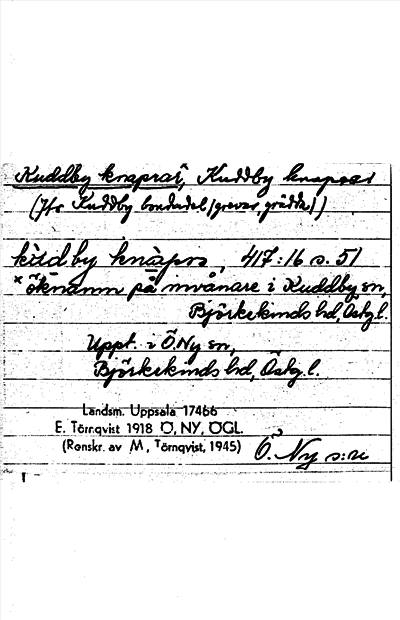 Kuddby knaprar, Kuddby knaprar
(Jfr Kuddby bondadel, grevar, grädda!)
kùdby knàpra, 417:16 s. 51
× öknamn på invånare i Kuddby sn,
Björkekinds hd, Östg.l.
Uppt. i Ö. Ny sn,
Björkekinds hd, Östg.l.
Landsm. Uppsala 17466
E. Törnqvist 1918 Ö, NY, ÖGL.
(Renskr. av M, Törnqvist, 1945)
Ö. Ny s:n